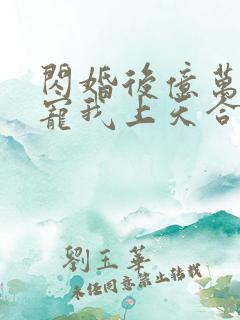 閃婚後億萬
寵我上天合
劉玉華
未經同意禁止轉載